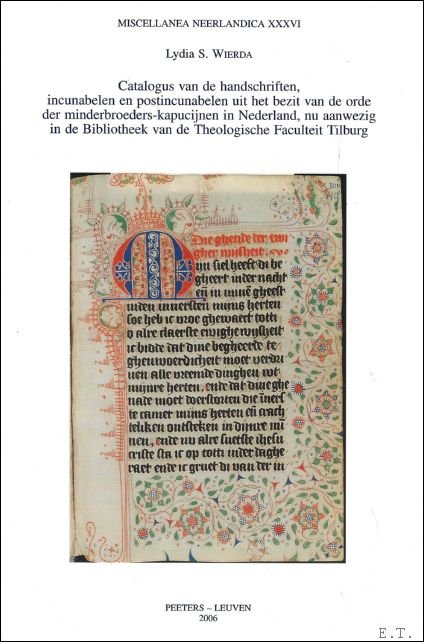 MISCELLANEA NEERLANDICA XXXVI
Lydia S. WIERDA
Catalogus van de handschriften,
incunabelen en postincunabelen uit het bezit van de orde
der minderbroeders-kapucijnen in Nederland, nu aanwezig
in de Bibliotheek van de Theologische Faculteit Tilburg
Die ghetide der ewi
gher wijsheit
Mijn siel heeft di be
gheert inder nacht
eñ in minē gheest
inden inuersten mijns herten
soe heb ic vroe ghewaect totti
o alre claerste ewighe wijsheit
ic bidde dat dine begheerte te
ghenwoerdicheit moet verdri
uen alle vreemde dinghen wt
mijnre herten, ende dat dine ghe
nade moet doerstorten die iners
te camer mijns herten eñ crach
teliken ontsteken in dijnre mī
nen, ende nu alre suetste ihesu
criste sta ic op totti inder daghe
raet ende ic gruet di van der in
PEETERS – LEUVEN
2006
E.T.